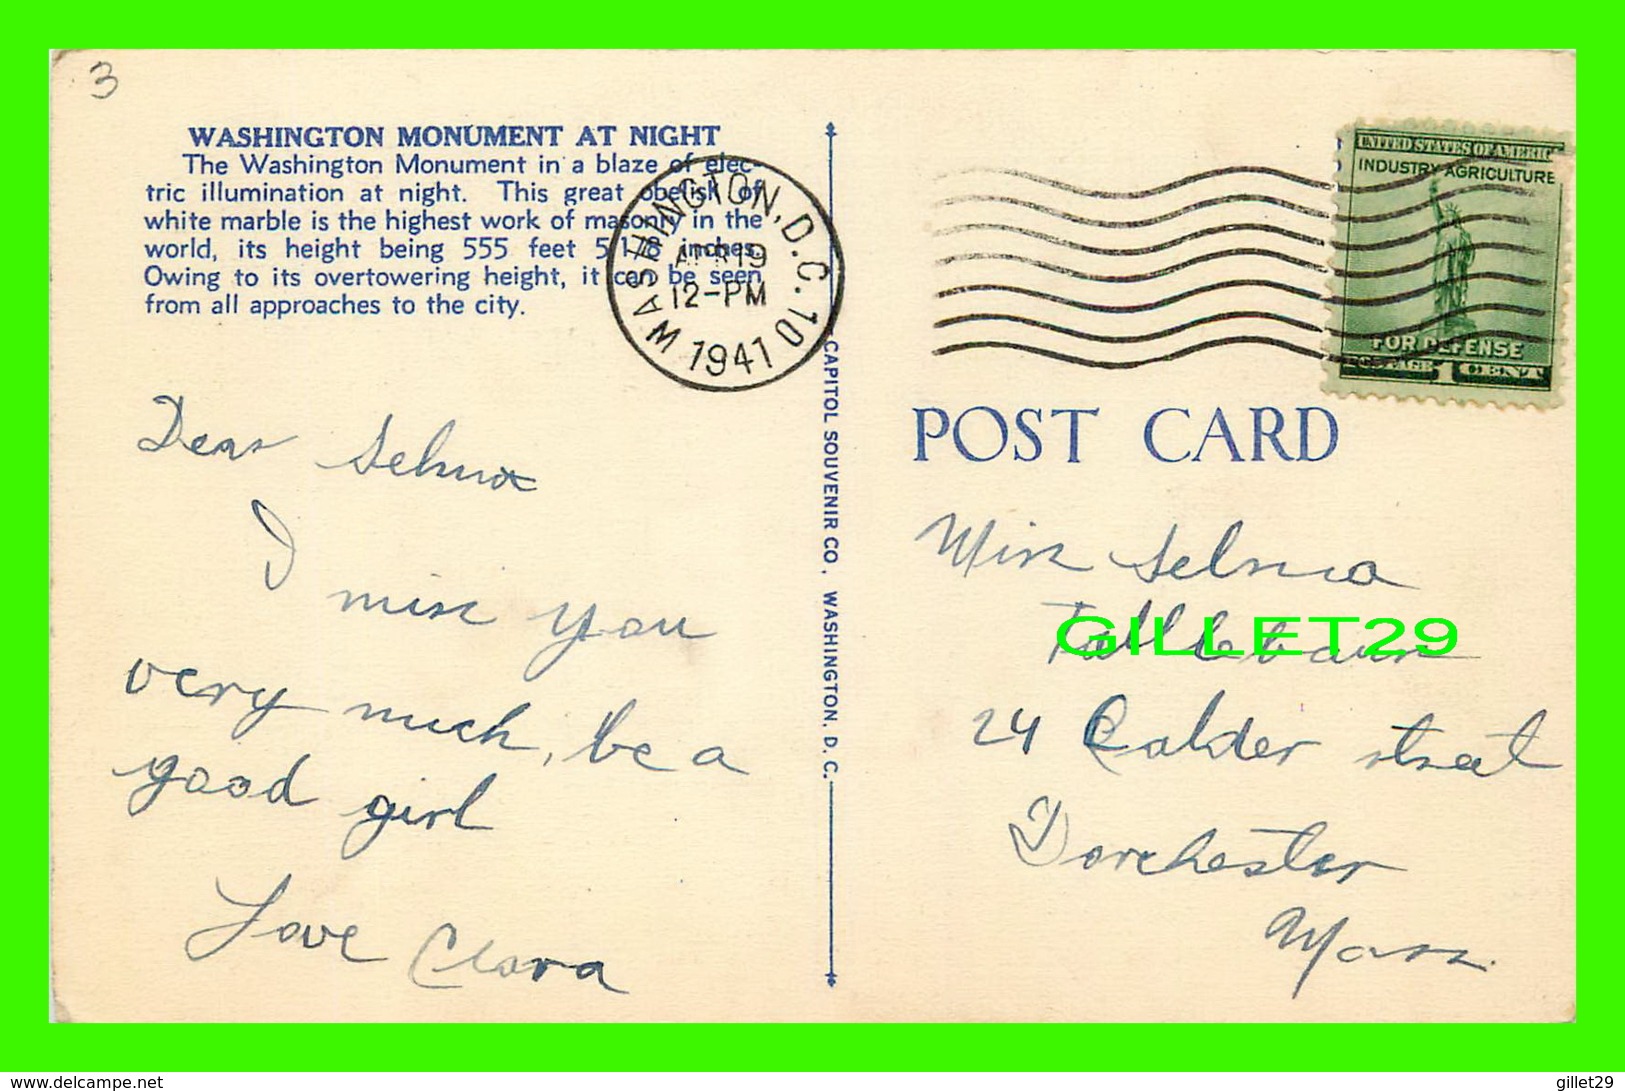 3
WASHINGTON MONUMENT AT NIGHT
The Washington Monument in a blaze of elec-
tric illumination at night. This great obelisk of
white marble is the highest work of masonry in the
world, its height being 555 feet 5 1/8 inches.
Owing to its overtowering height, it can be seen
from all approaches to the city.
WASHINGTON, D.C. 10
APR 19
12-PM
1941
UNITED STATES OF AMERICA
INDUSTRY AGRICULTURE
FOR DEFENSE
POSTAGE 1 CENT
Dear Selma
I miss you
very much, be a
good girl
Love Clara
CAPITOL SOUVENIR CO., WASHINGTON, D. C.
POST CARD
Miss Selma
GILLET29
24 Calder street
Dorchester
Mass.
www.delcampe.net
gillet29